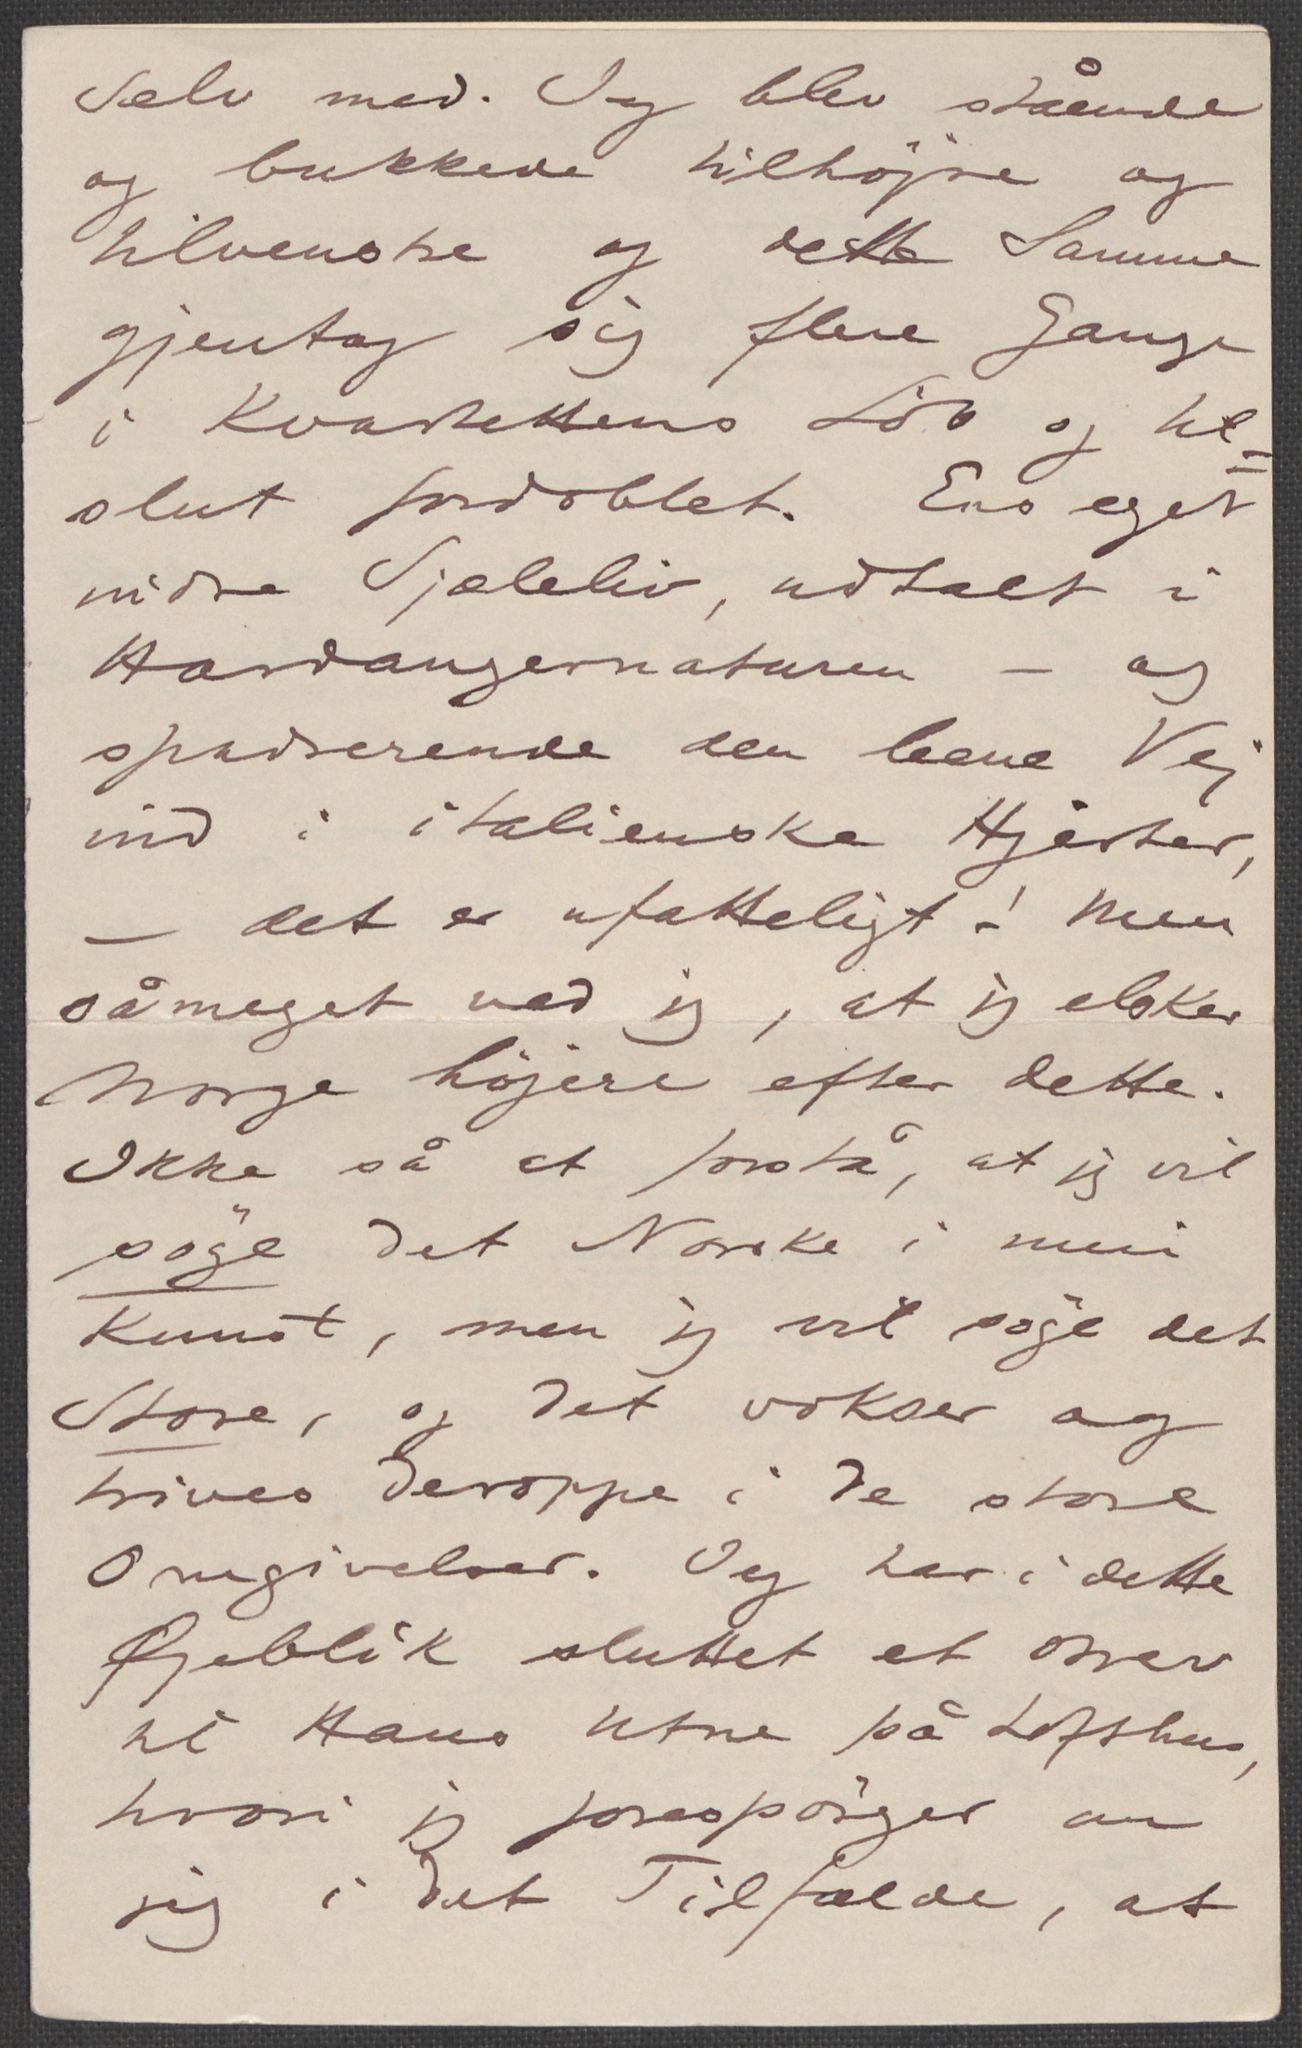 Selv med. Jeg blev stående
og bukkede tilhöjre og
tilvenstre og dette Samme
gjentog sig flere Gange
i Kvartettens Löb og til-
slut fordoblet. Ens eget
indre Sjæleliv, udtalt i
Hardangernaturen – og
spadserende den lene Vej
ind i italienske Hjerter,
– det er ufatteligt! Men
såmeget ved jeg, at jeg elsker
Norge höjere efter dette.
Ikke så at forstå, at jeg vil
söge det Norske i min
Kunst, men jeg vil söge det
Store, og det vokser og
trives deroppe i de store
Omgivelser. Jeg har i dette
Øjeblik sluttet et Brev
til Hans Utne på Lofthus,
hvori jeg forespörger om
jeg i det Tilfælde, at